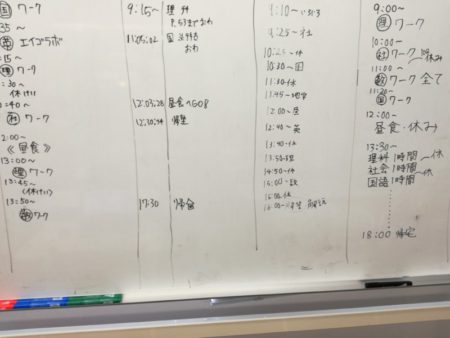 国ワーク
35~
英エイゴラボ
:15~
理ワーク
:30~
休けい
:40~
社ワーク
2:00~
《昼食》
13:00~
理ワーク
13:45~
(休けい)
13:50~
ワーク
9:15~ 理科
P.53までおわ
11:05:02
おわ
12:03:28 昼食
12:30:54 帰宅
17:30
9:10~
9:25~社
10:25~休
10:30~国
11:30休
11:45~
12:00~昼
12:40~英
13:40~休
13:50~
14:50~休
15:00~
9:00~
理ワーク
10:00~
社ワーク 休み
11:00~
数ワーク全て
11:30~
国ワーク
12:00~
昼食・休み
13:30~
理科1時間~休
社会1時間~休
国語1時間
18:00 帰宅